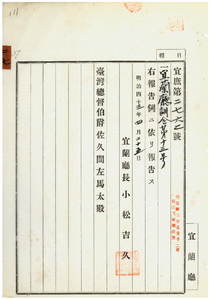 宜庶第二七六二號
一宜蘭廳訓令第十三號
右報告例ニ依リ報告ス
明治四十五年四月二十五日
宜蘭廳長小松吉久
臺灣總督伯爵佐久間左馬太殿
宜蘭廳